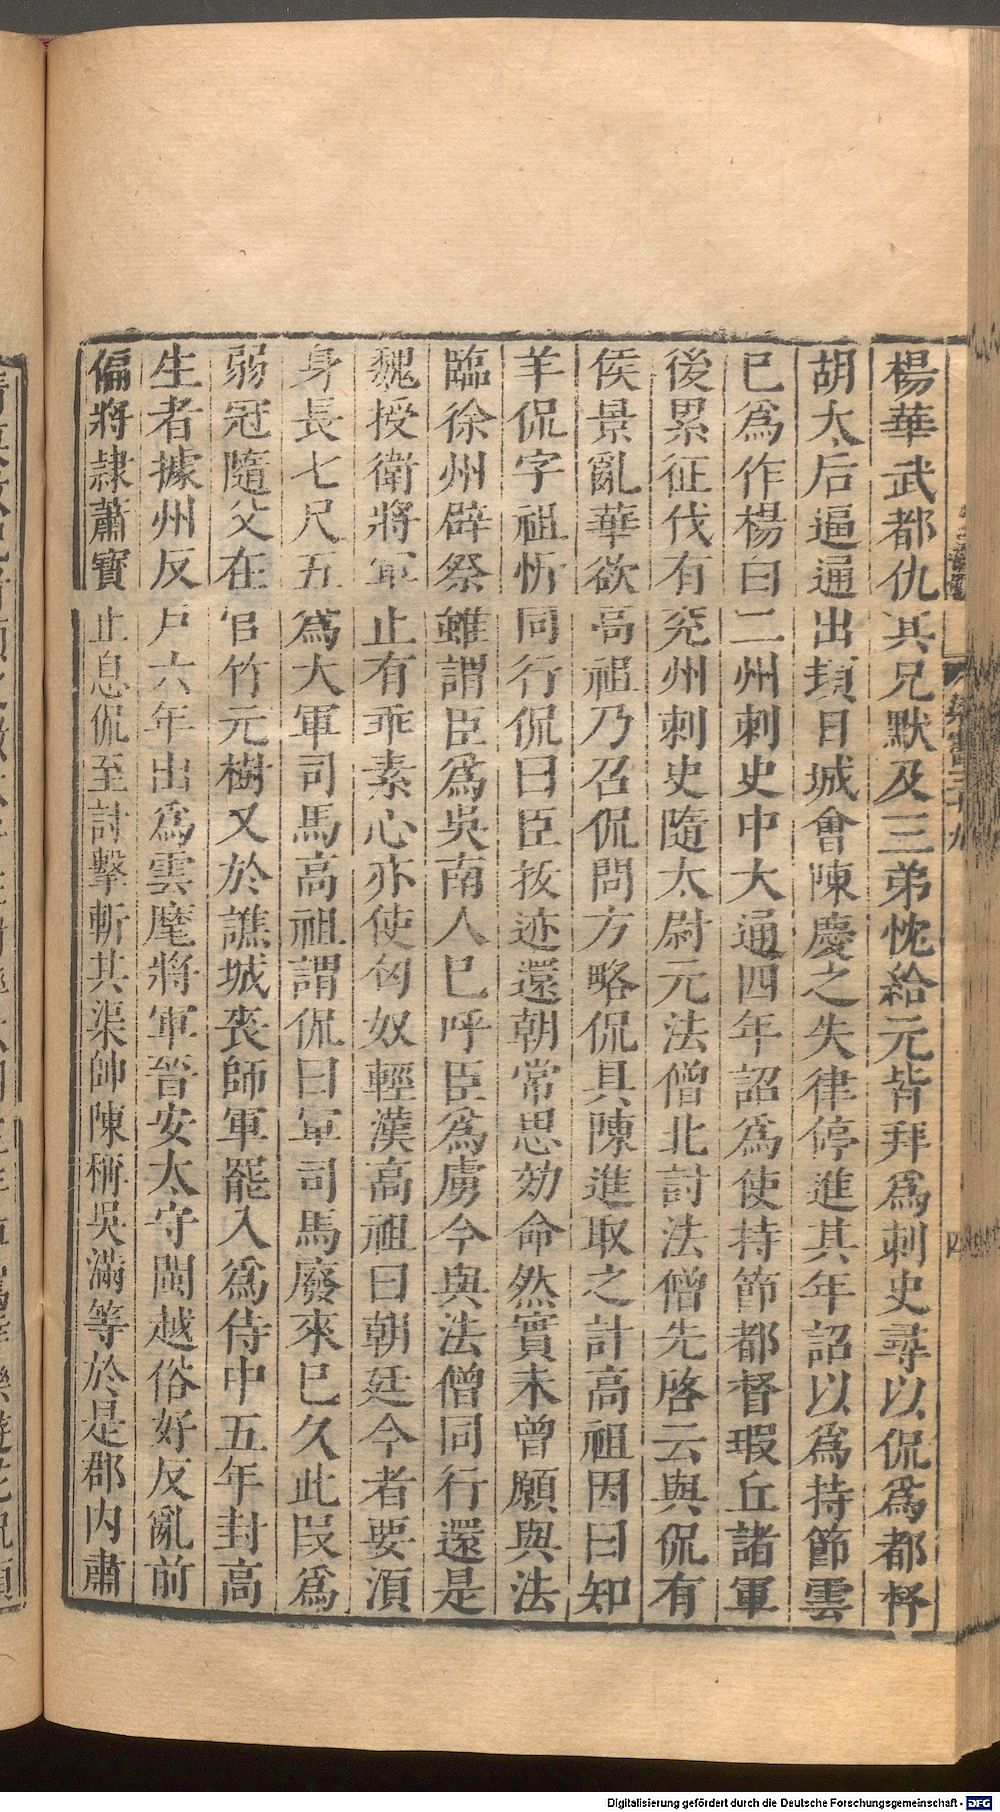 梁書三十九
四
楊華武都仇其兄默及三弟忱給元皆拜爲刺史尋以侃爲都督
胡太后逼通出頓日城會陳慶之失律停進其年詔以爲持節雲
已爲作楊曰二州刺史中大通四年詔爲使持節都督瑕丘諸軍
後累征伐有兖州刺史隨太尉元法僧北討法僧先啓云與侃有
侯景亂華欲高祖乃召侃問方略侃具陳進取之計高祖因曰知
羊侃字祖忻同行侃曰臣拔迹還朝常思効命然實未曾願與法
臨徐州辟祭雖謂臣爲吳南人已呼臣爲虜今與法僧同行還是
魏授衛將軍止有乖素心亦使匈奴輕漢高祖曰朝廷今者要湏
身長七尺五爲大軍司馬高祖謂侃曰軍司馬廢來已久此叚爲
弱冠隨父在官竹元樹又於譙城喪師軍罷入爲侍中五年封高
生者據州反戶六年出爲雲麾將軍晉安太守閩越俗好反亂前
偏將隷蕭寶止息侃至討擊斬其渠帥陳稱吳滿等於是郡内肅
Digitalisierung gefördert durch die Deutsche Forschungsgemeinschaft - DFG